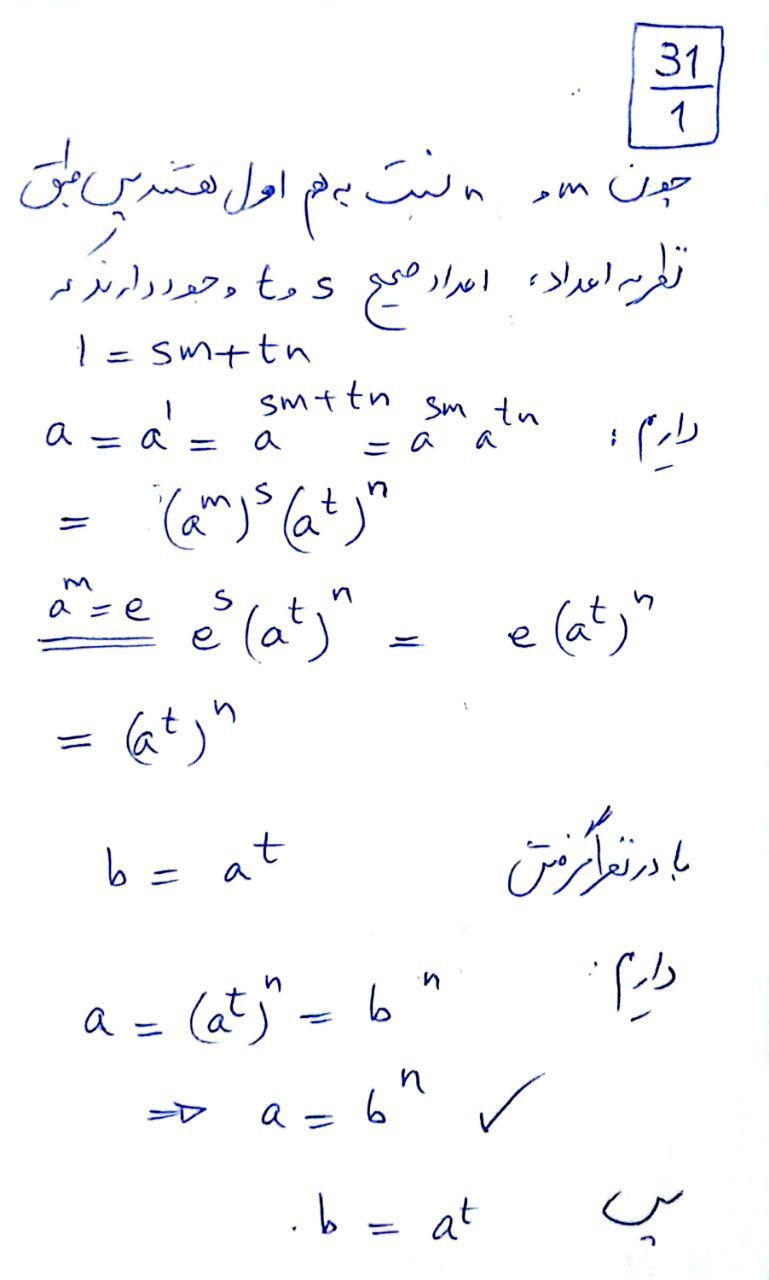 31/1
چون m و n نسبت به هم اول هستند پس طبق
نظریه اعداد، اعداد صحیح s و t وجود دارند که
1 = sm + tn
داریم : a = a^1 = a^{sm+tn} = a^{sm} a^{tn}
= (a^m)^s (a^t)^n
a^m = e e^s (a^t)^n = e (a^t)^n
= (a^t)^n
با در نظر گرفتن b = a^t
داریم :
a = (a^t)^n = b^n
⇒ a = b^n ✓
پس b = a^t .